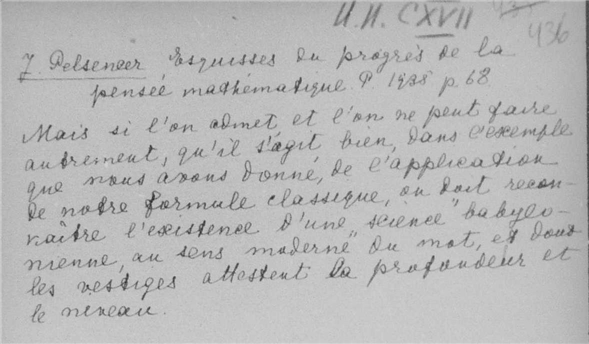 И.И. CXVII
436
J. Pelseneer Esquisses du progrès de la
pensée mathématique. P. 1935 p. 68
Mais si l'on admet, et l'on ne peut faire
autrement, qu'il s'agit bien, dans l'exemple
que nous avons donné, de l'application
de notre formule classique, on doit recon-
naître l'existence d'une „science" babylo-
nienne, au sens moderne du mot, et dont
les vestiges attestent la profondeur et
le niveau.